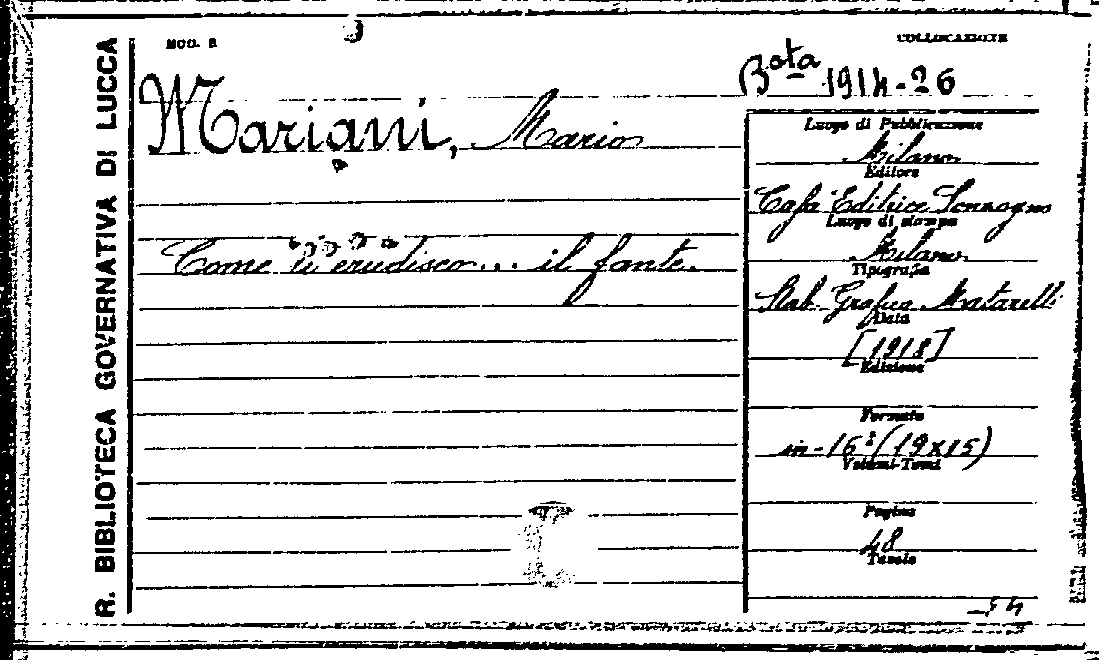 R. BIBLIOTECA GOVERNATIVA DI LUCCA
MOD. B
COLLOCAZIONE
Bᵒᵗᵃ 1914-26
Mariani, Mario
Come ti erudisco... il fante.
Luogo di Pubblicazione
Milano
Editore
Casa Editrice Sonzogno
Luogo di stampa
Milano
Tipografia
Stab. Grafico Matarelli
Data
[1918]
Edizione
Formato
in-16° (19x15)
Volumi-Tomi
Pagine
48
Tavole